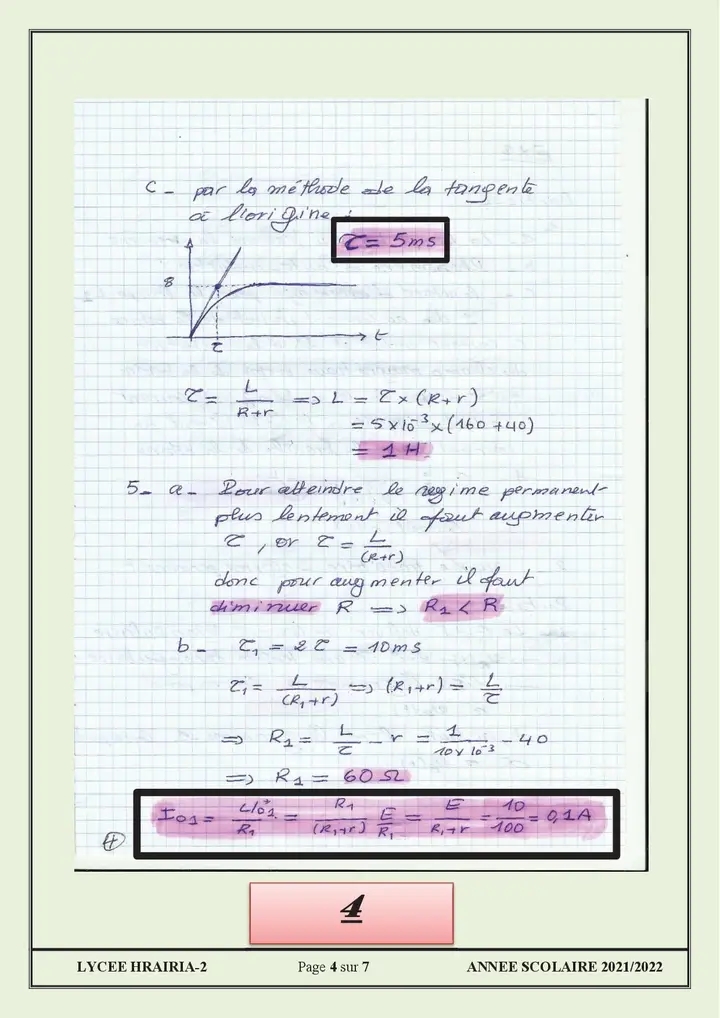 c - par la méthode de la tangente
à l'origine :
τ = 5ms
8
τ
t
τ = L/(R+r) => L = τ × (R+r)
= 5×10⁻³ × (160 + 40)
= 1 H
5 - a - Pour atteindre le regime permanent
plus lentement il faut augmenter
τ, or τ = L/(R+r)
donc pour augmenter il faut
diminuer R => R1 < R
b - τ1 = 2τ = 10ms
τ1 = L/(R1+r) => (R1+r) = L/τ
=> R1 = L/τ - r = 1/(10×10⁻³) - 40
=> R1 = 60 Ω
I01 = /R1 = R1/(R1+r) E/R1 = E/(R1+r) = 10/100 = 0,1A
4
4
LYCEE HRAIRIA-2 Page 4 sur 7 ANNEE SCOLAIRE 2021/2022